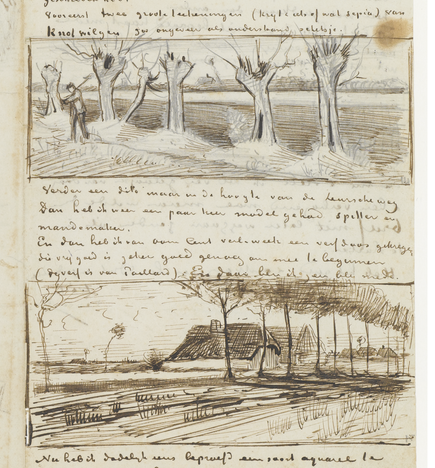 Vooreerst twee groote teekeningen (krijt en of wat sepia) van
Knotwilgen zoo ongeveer als onderstaand schetsje.
Verder een dito maar in de hoogte van de Leursche weg
Dan heb ik weer een paar keer model gehad spitter en
mandenmaker.
En dan heb ik van oom Cent verleden week een verfdoos gekregen
die vrij goed is zeker goed genoeg om mee te beginnen
(de verf is van Paillard). En daar ben ik zeer blij mede.
Nu heb ik dadelijk eens beproefd een soort aquarel te